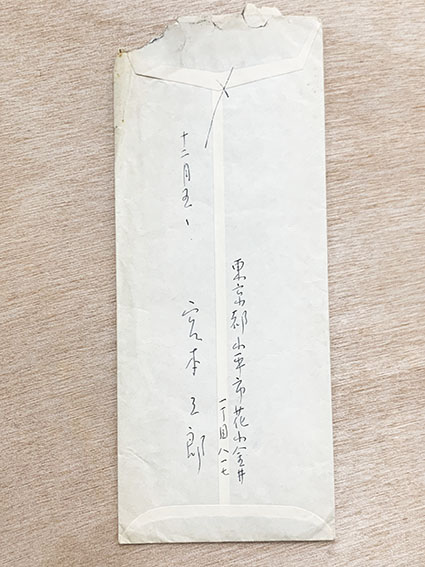 〆
東京都小平市花小金井
一丁目八一七
宮本五郎
十二月五、